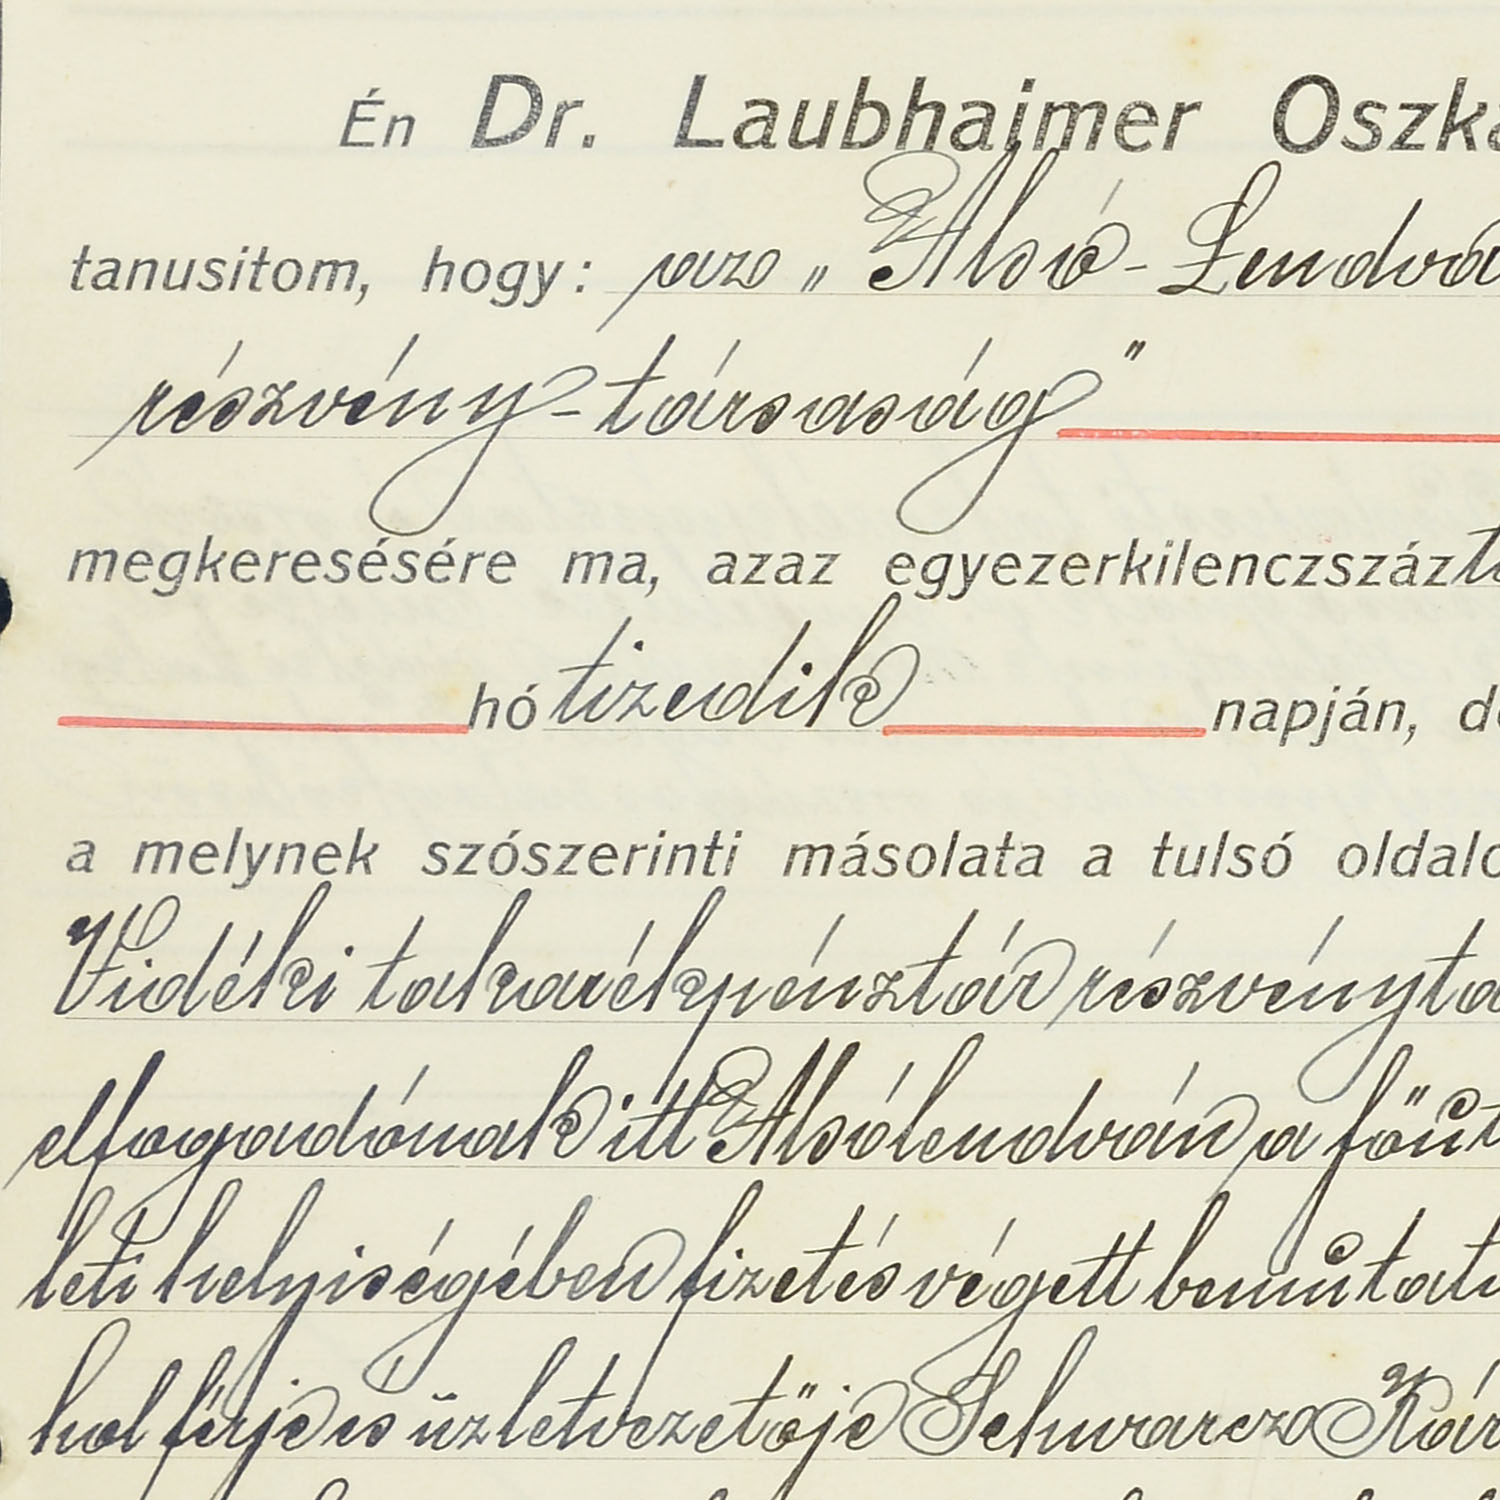 Én Dr. Laubhaimer Oszká
tanusitom, hogy: az „Alsó-Lendva
részvény-társaság"
megkeresésére ma, azaz egyezerkilenczszázt
hó tizedik napján, de
a melynek szószerinti másolata a tulsó oldalo
Vidéki takarékpénztár részvényta
elfogadónak itt Alsólendván a főút
leti helyiségében fizetés végett bemutat
hol férje és üzletvezetője Schwarcz Kár